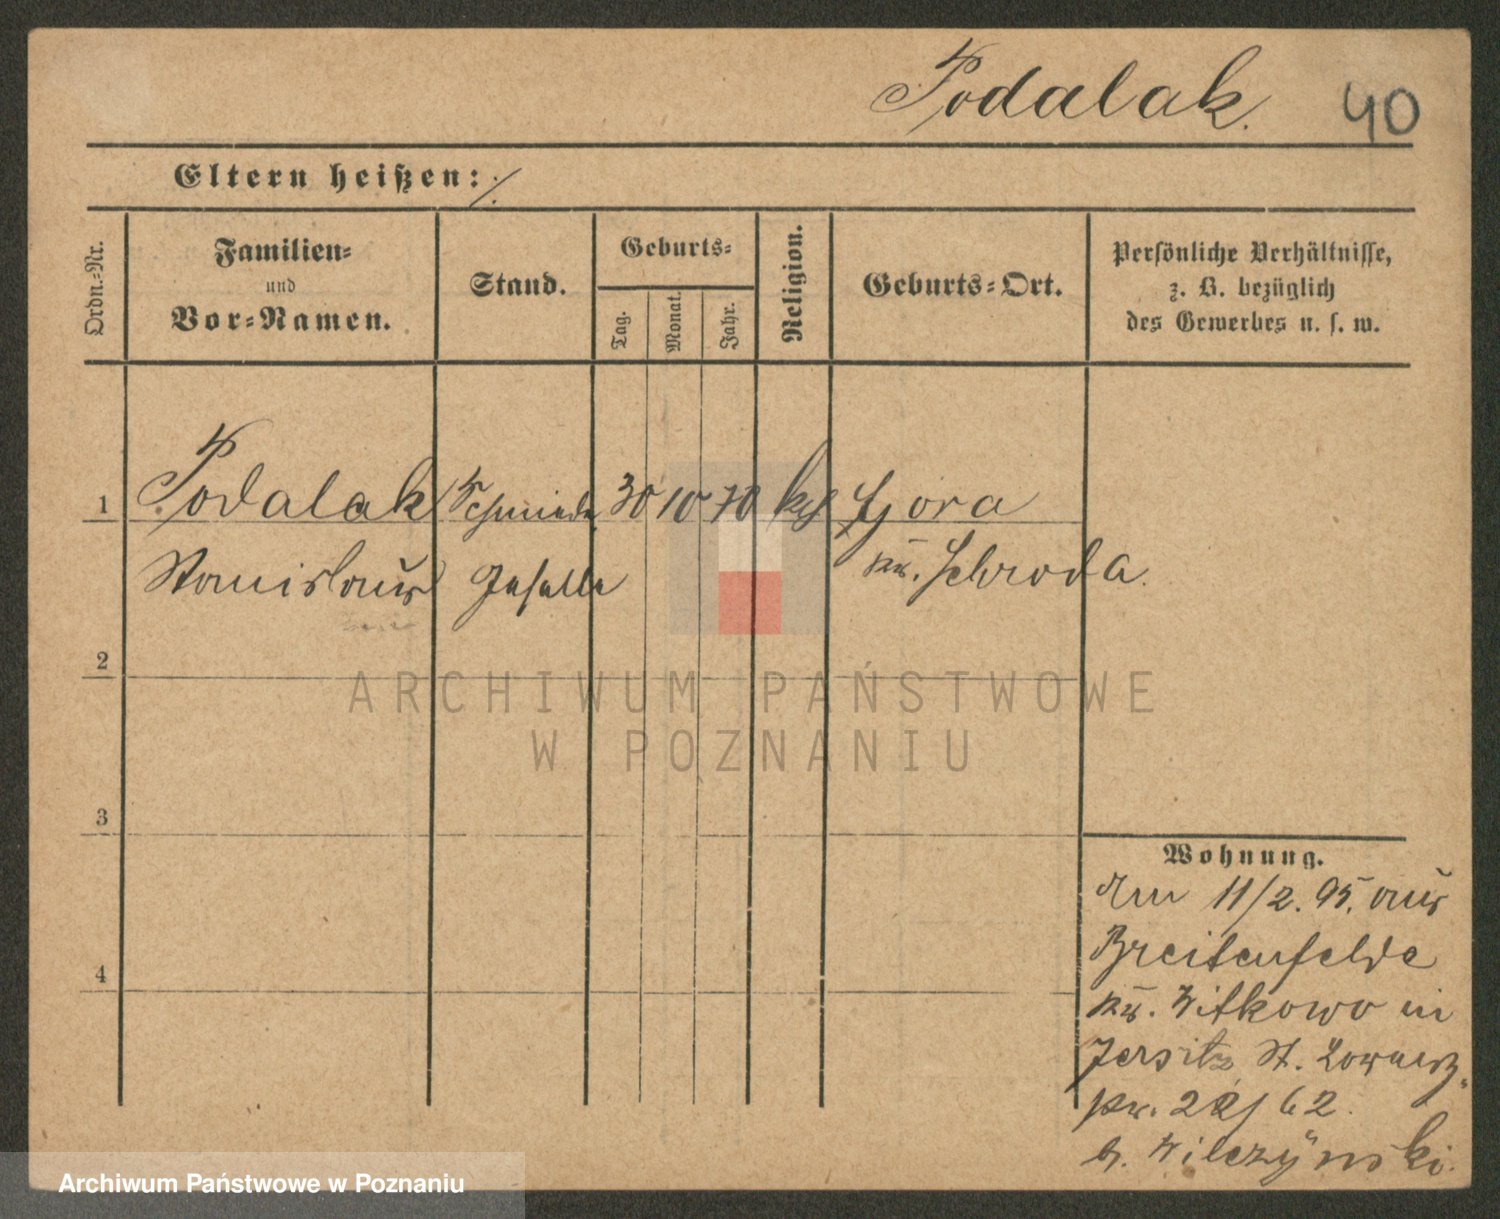 Podalak.
40
Eltern heißen: ./.
Ordn.-Nr.
Familien-
und
Vor-Namen.
Stand.
Geburts-
Tag.
Monat.
Jahr.
Religion.
Geburts-Ort.
Persönliche Verhältnisse,
z. B. bezüglich
des Gewerbes u. s. w.
1 Podalak Schmiede 30 10 70 kth Gora
Stanislaus Geselle Kr. Schroda.
2
ARCHIWUM PAŃSTWOWE
W POZNANIU
3
4
Wohnung.
Am 11/2. 95. aus
Breitenfelde
Kr. Witkowo in
Jersitz St.
62.
b. Wilczynski.
Archiwum Państwowe w Poznaniu